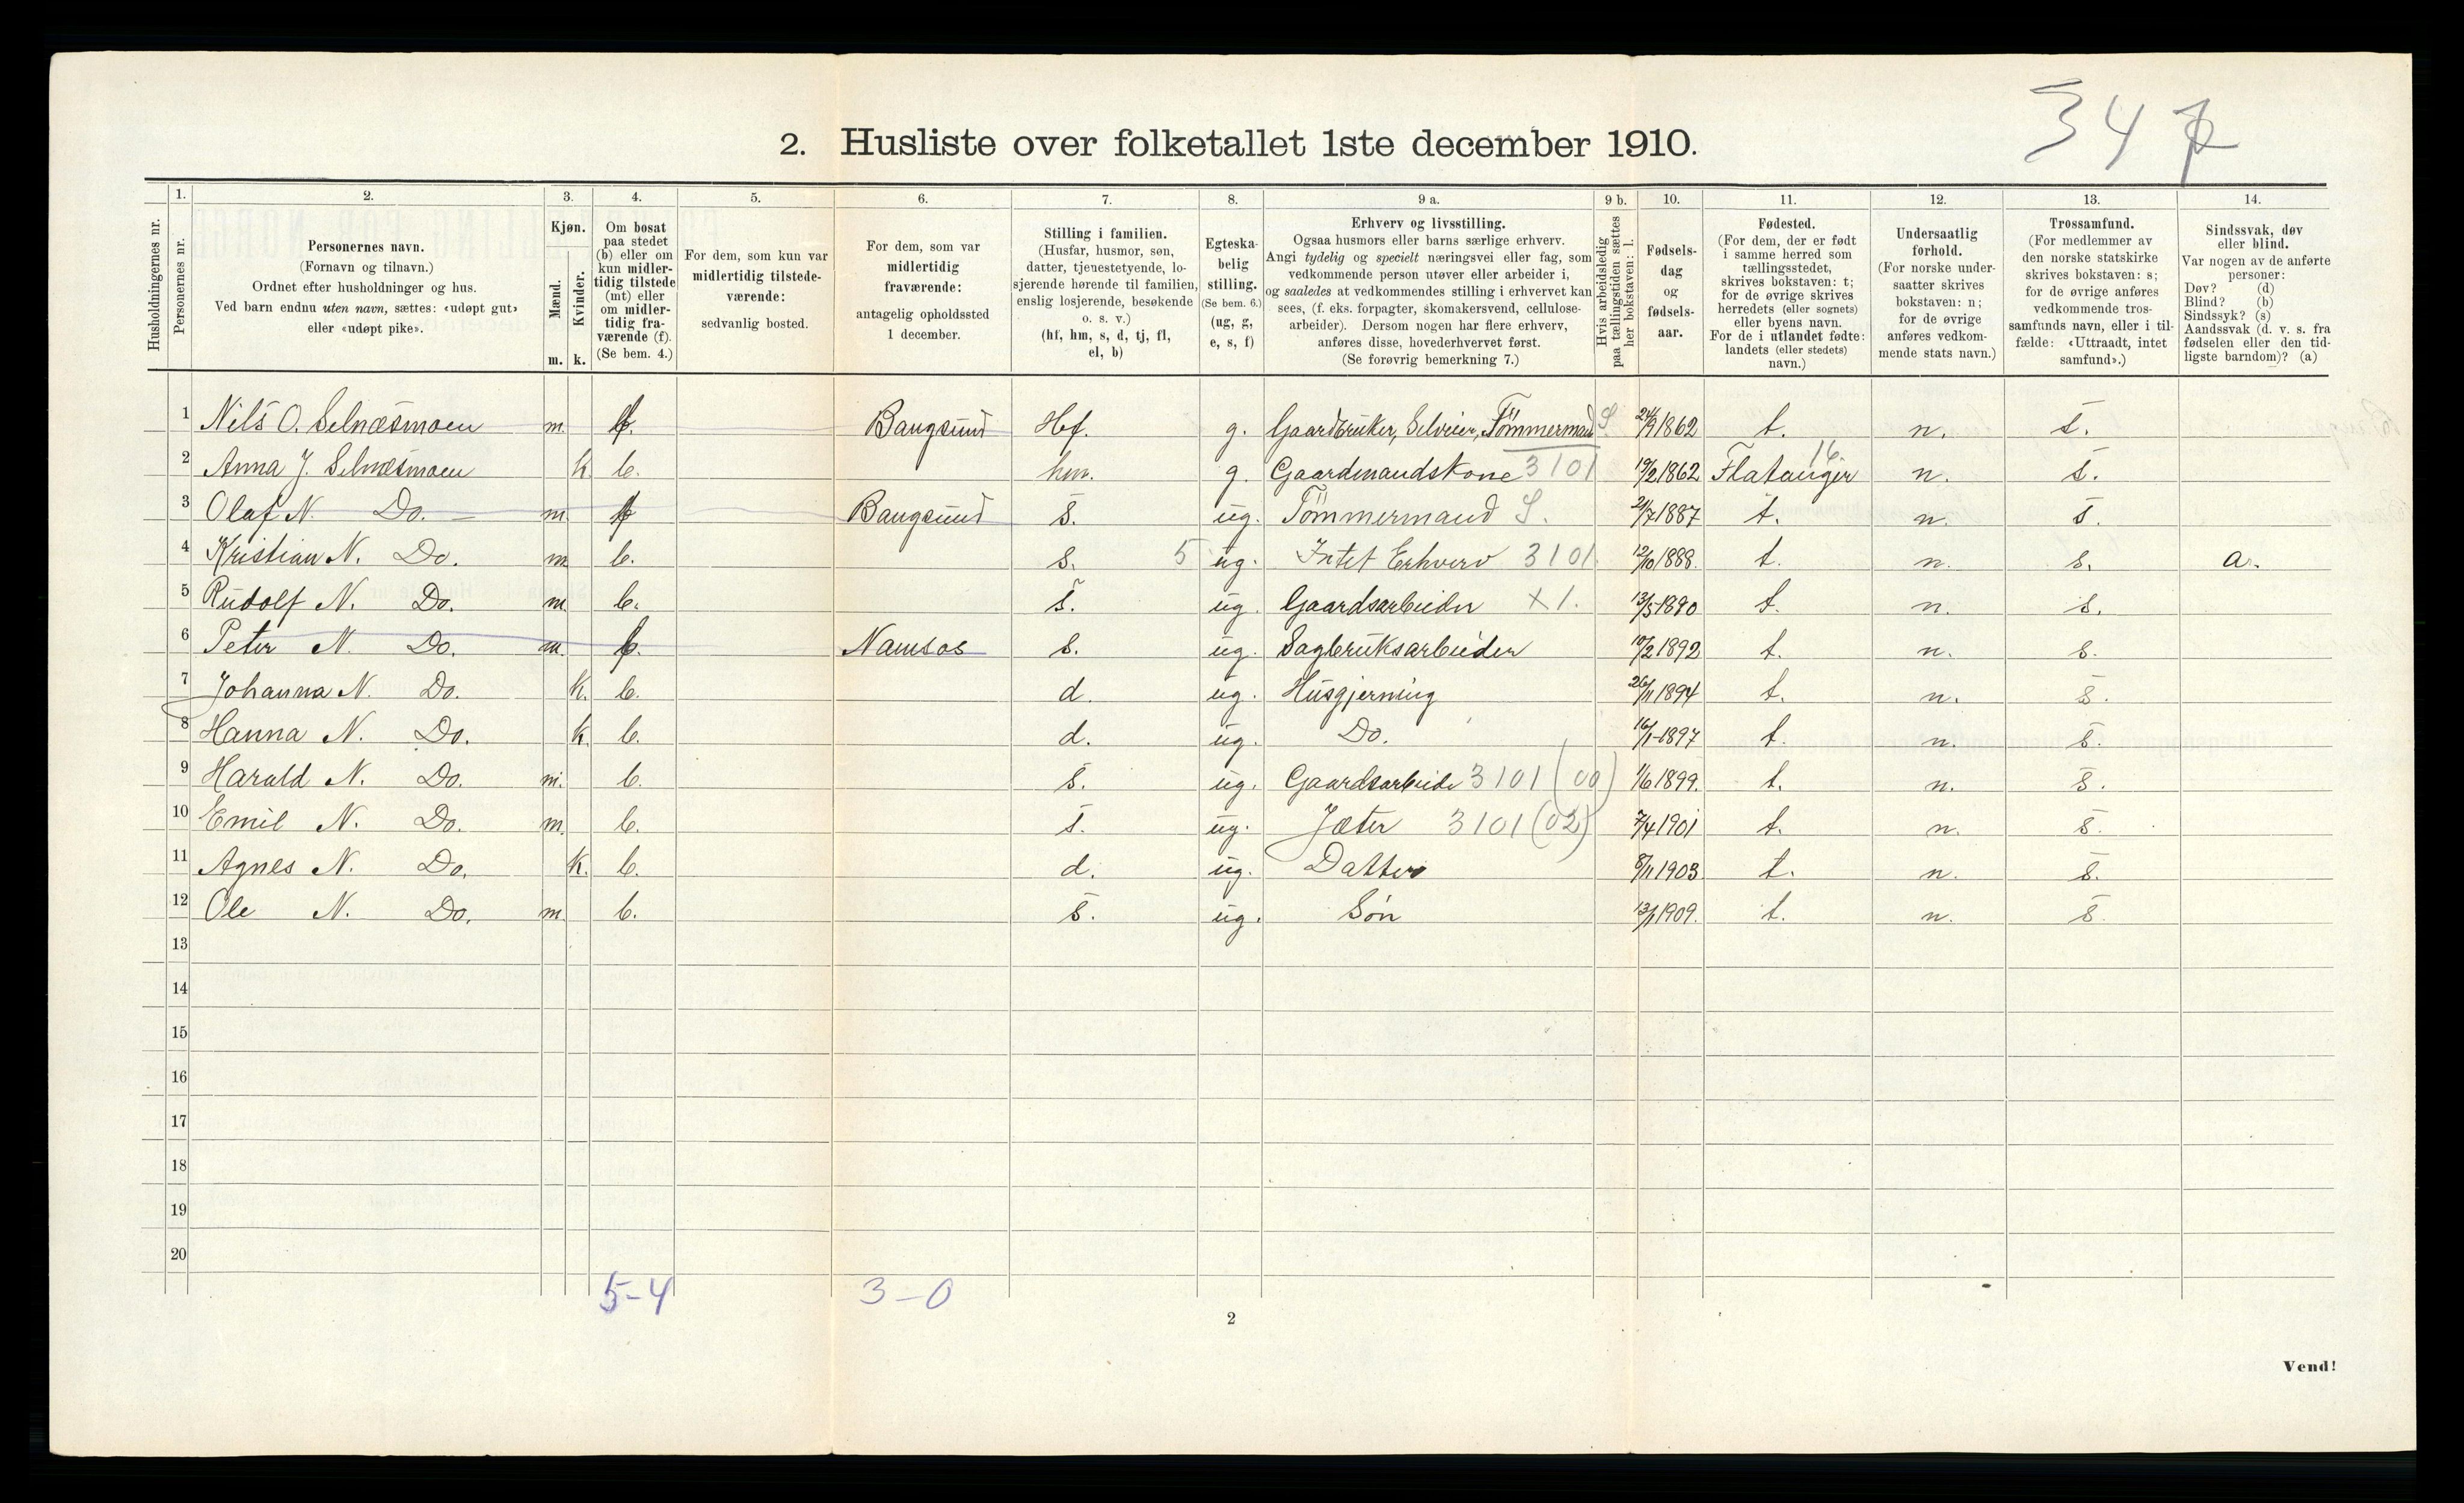 34
2. Husliste over folketallet 1ste december 1910.
Husholdningernes nr.
1. Personernes nr.
2. Personernes navn.
(Fornavn og tilnavn.)
Ordnet efter husholdninger og hus.
Ved barn endnu uten navn, sættes: «udøpt gut»
eller «udøpt pike».
3. Kjøn.
Mænd. m.
Kvinder. k.
4. Om bosat
paa stedet
(b) eller om
kun midler-
tidig tilstede
(mt) eller
om midler-
tidig fra-
værende (f).
(Se bem. 4.)
5. For dem, som kun var
midlertidig tilstede-
værende:
sedvanlig bosted.
6. For dem, som var
midlertidig
fraværende:
antagelig opholdssted
1 december.
7. Stilling i familien.
(Husfar, husmor, søn,
datter, tjenestetyende, lo-
sjerende hørende til familien,
enslig losjerende, besøkende
o. s. v.)
(hf, hm, s, d, tj, fl,
el, b)
8. Egteska-
belig
stilling.
(Se bem. 6.)
(ug, g,
e, s, f)
9 a. Erhverv og livsstilling.
Ogsaa husmors eller barns særlige erhverv.
Angi tydelig og specielt næringsvei eller fag, som
vedkommende person utøver eller arbeider i,
og saaledes at vedkommendes stilling i erhvervet kan
sees, (f. eks. forpagter, skomakersvend, cellulose-
arbeider). Dersom nogen har flere erhverv,
anføres disse, hovederhvervet først.
(Se forøvrig bemerkning 7.)
9 b. Hvis arbeidsledig
paa tællingstiden sættes
her bokstaven: l.
10. Fødsels-
dag
og
fødsels-
aar.
11. Fødested.
(For dem, der er født
i samme herred som
tællingsstedet,
skrives bokstaven: t;
for de øvrige skrives
herredets (eller sognets)
eller byens navn.
For de i utlandet fødte:
landets (eller stedets)
navn.)
12. Undersaatlig
forhold.
(For norske under-
saatter skrives
bokstaven: n;
for de øvrige
anføres vedkom-
mende stats navn.)
13. Trossamfund.
(For medlemmer av
den norske statskirke
skrives bokstaven: s;
for de øvrige anføres
vedkommende tros-
samfunds navn, eller i til-
fælde: «Uttraadt, intet
samfund».)
14. Sindssvak, døv
eller blind.
Var nogen av de anførte
personer:
Døv? (d)
Blind? (b)
Sindssyk? (s)
Aandssvak (d. v. s. fra
fødselen eller den tid-
ligste barndom)? (a)
1 Nils O. Selnæsmoen m. f. Bangsund Hf. g. Gaardbruker, Selveier, Tömmermand S. 24/9 1862 t. n. s.
2 Anna J. Selnæsmoen k. b. hm. g. Gaardmandskone 3101 19/2 1862 Flatanger 16. n. s.
3 Olaf N. Do. m. f Bangsund s. ug. Tömmermand S. 21/7 1887 t. n. s.
4 Kristian N. Do. m. b. s. 5 ug. Intet Erhverv 3101. 12/10 1888. t. n. s. a.
5 Rudolf N. Do. m. b. s. ug. Gaardsarbeider X1. 13/5 1890 t. n. s.
6 Peter N. Do. m. f. Namsos s. ug. Sagbruksarbeider 10/2 1892 t. n. s.
7 Johanna N. Do. k. b. d. ug. Husgjerning 26/11 1894 t. n. s.
8 Hanna N. Do. k. b. d. ug. Do. 16/1 1897 t. n. s.
9 Harald N. Do. m. b. s. ug. Gaardsarbeide 3101 (00) 1/6 1899. t. n. s.
10 Emil N. Do. m. b. s. ug. Jæter 3101 (02) 7/4 1901 t. n. s.
11 Agnes N. Do. k. b. d. ug. Datter 8/11 1903 t. n. s.
12 Ole N. Do. m. b. s. ug. Sön 13/1 1909. t. n. s.
13
14
15
16
17
18
19
20
5-4 3-0
2
Vend!